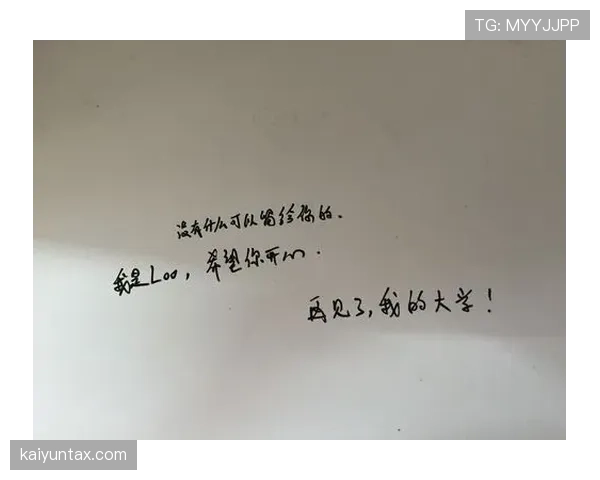 TG: MYYJJPP
没有什么可以留给你的.
我是Loo,希望你开心.
再见了,我的大学!
kaiyuntax.com